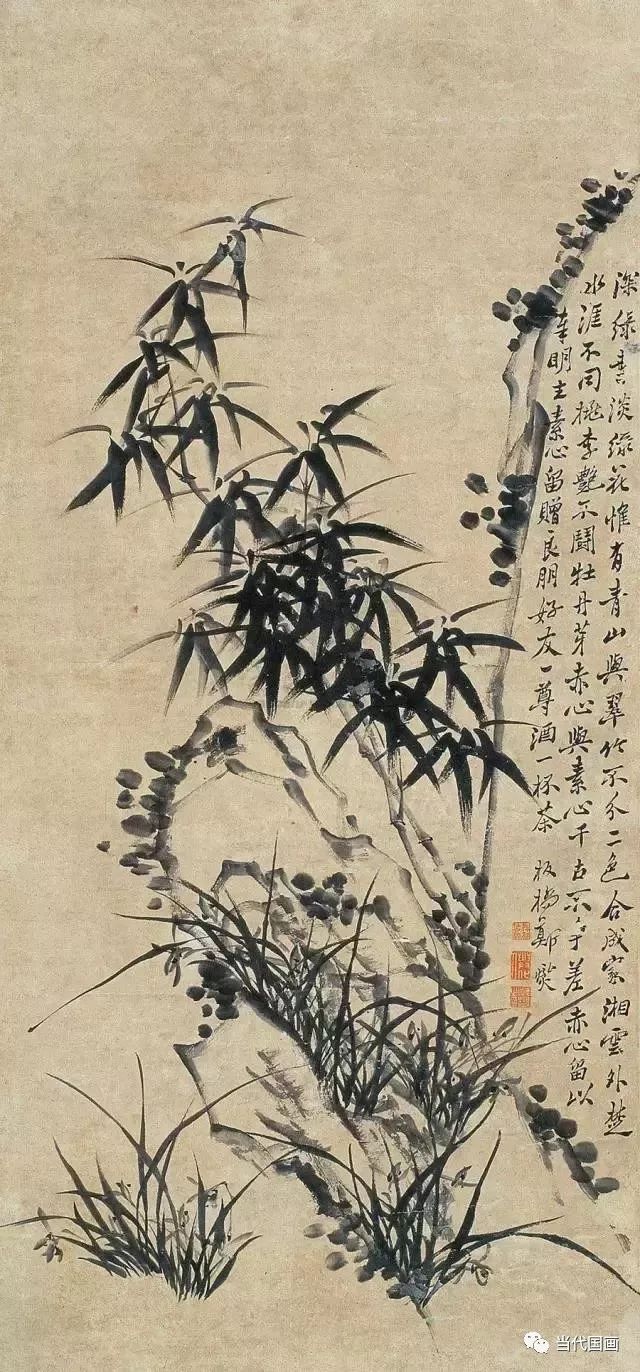 深綠葉淡綠花惟有青山與翠竹不分二色合成家湘雲外楚
水涯不同桃李艷不鬪牡丹芽赤心與素心千古不爭差赤心留以
奉明主素心留贈良朋好友一尊酒一杯茶 板橋鄭燮
当代国画